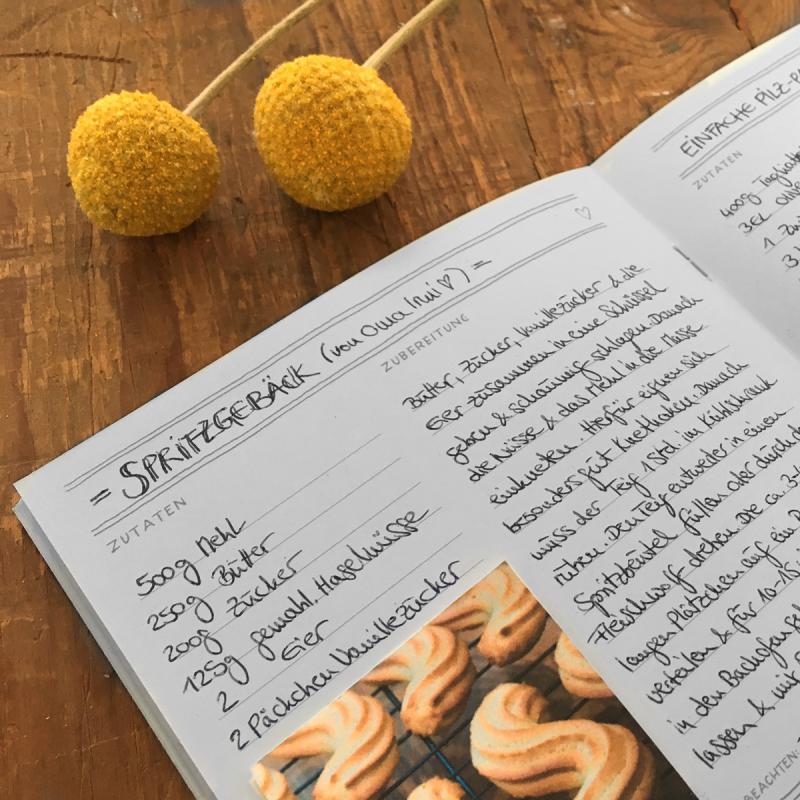 = SPRITZGEBÄCK (von Oma Irmi ♡) =
ZUTATEN
500g Mehl
250g Butter
200g Zucker
125g gemahl. Haselnüsse
2 Eier
2 Päckchen Vanillezucker
ZUBEREITUNG
Butter, Zucker, Vanillezucker & die
Eier zusammen in eine Schüssel
geben & schaumig schlagen. Danach
die Nüsse & das Mehl in die Masse
einkneten. Hierfür eignen sich
besonders gut Knethaken. Danach
muss der Teig 1 Std. im Kühlschrank
ruhen. Den Teig entweder in einen
Spritzbeutel füllen oder durch d
Fleischwolf drehen. Die ca. 3-
langen Plätzchen auf ein
verteilen & für 10-15
in den Backofen
lassen & mit
BEACHTEN:
EINFACHE PILZ-P
ZUTATEN
400g Tagliat
3EL Oliv
1 Zw
3